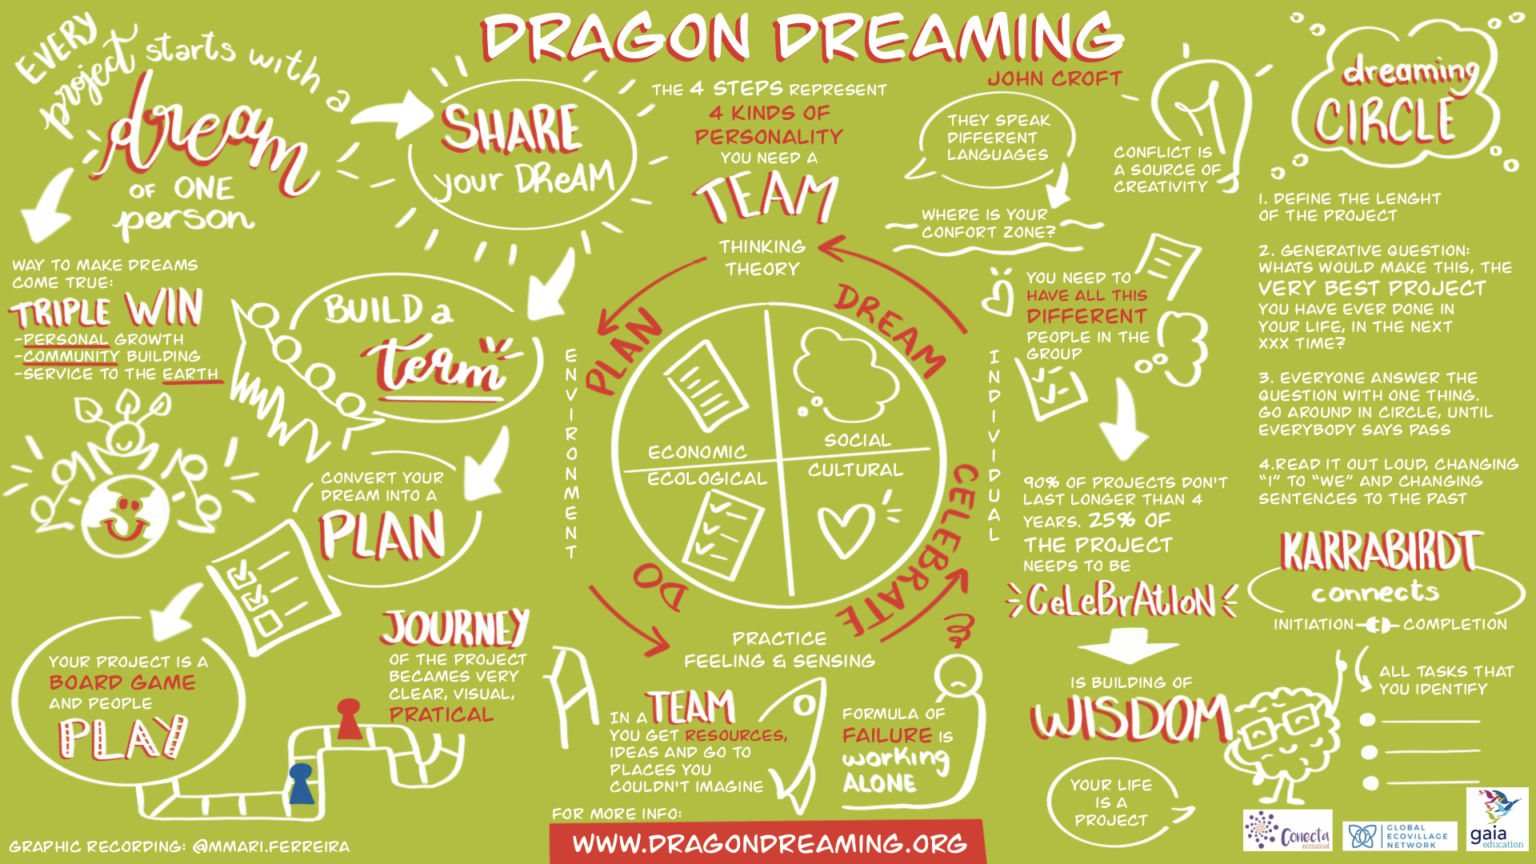 DRAGON DREAMING
JOHN CROFT
EVERY
project starts with a
dream
OF ONE
person
SHARE
your DReAM
WAY TO MAKE DREAMS
COME TRUE:
TRIPLE WIN
-PERSONAL GROWTH
-COMMUNITY BUILDING
-SERVICE TO THE EARTH
BUILD a
team
CONVERT YOUR
DREAM INTO A
PLAN
YOUR PROJECT IS A
BOARD GAME
AND PEOPLE
PLAY
JOURNEY
OF THE PROJECT
BECAMES VERY
CLEAR, VISUAL,
PRATICAL
GRAPHIC RECORDING: @MMARI.FERREIRA
THE 4 STEPS REPRESENT
4 KINDS OF
PERSONALITY
YOU NEED A
TEAM
THINKING
THEORY
PLAN
DREAM
ENVIRONMENT
INDIVIDUAL
ECONOMIC
SOCIAL
ECOLOGICAL
CULTURAL
DO
CELEBRATE
PRACTICE
FEELING & SENSING
IN A TEAM
YOU GET RESOURCES,
IDEAS AND GO TO
PLACES YOU
COULDN'T IMAGINE
FORMULA OF
FAILURE IS
working
ALONE
FOR MORE INFO:
WWW.DRAGONDREAMING.ORG
THEY SPEAK
DIFFERENT
LANGUAGES
CONFLICT IS
A SOURCE OF
CREATIVITY
WHERE IS YOUR
CONFORT ZONE?
YOU NEED TO
HAVE ALL THIS
DIFFERENT
PEOPLE IN THE
GROUP
90% OF PROJECTS DON'T
LAST LONGER THAN 4
YEARS. 25% OF
THE PROJECT
NEEDS TO BE
CeLeBrAtIoN
IS BUILDING OF
WISDOM
YOUR LIFE
IS A
PROJECT
dreaming
CIRCLE
1. DEFINE THE LENGHT
OF THE PROJECT
2. GENERATIVE QUESTION:
WHATS WOULD MAKE THIS, THE
VERY BEST PROJECT
YOU HAVE EVER DONE IN
YOUR LIFE, IN THE NEXT
XXX TIME?
3. EVERYONE ANSWER THE
QUESTION WITH ONE THING.
GO AROUND IN CIRCLE, UNTIL
EVERYBODY SAYS PASS
4.READ IT OUT LOUD, CHANGING
"I" TO "WE" AND CHANGING
SENTENCES TO THE PAST
KARRABIRDT
connects
INITIATION COMPLETION
ALL TASKS THAT
YOU IDENTIFY
Conecta
ecossocial
GLOBAL
ECOVILLAGE
NETWORK
gaia
education